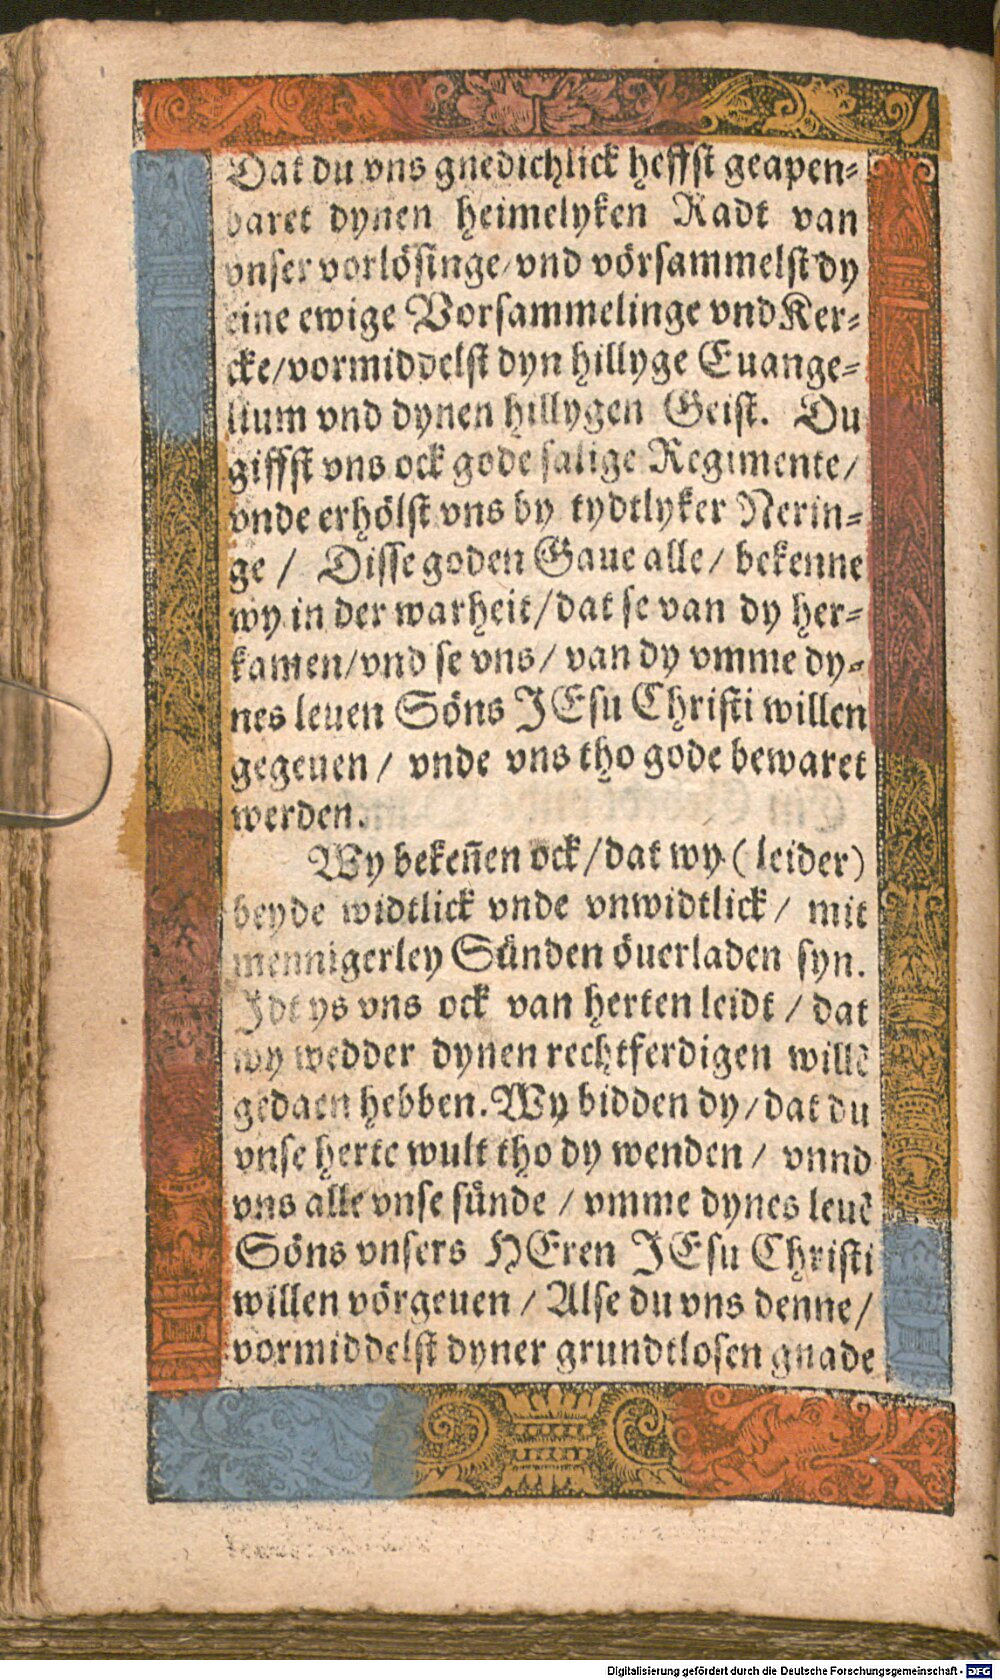 Dat du vns gnedichlick heffst geapen⸗
baret dynen heimelyken Radt van
vnser vorlösinge/ vnd vörsammelst dy
eine ewige Vorsammelinge vnd Ker⸗
cke/ vormiddelst dyn hillyge Euange⸗
lium vnd dynen hillygen Geist. Du
giffst vns ock gode salige Regimente/
vnde erhölst vns by tydtlyker Nerin⸗
ge / Disse goden Gaue alle/ bekenne
wy in der warheit/ dat se van dy her⸗
kamen/ vnd se vns/ van dy vmme dy⸗
nes leuen Söns JEsu Christi willen
gegeuen / vnde vns tho gode bewaret
werden.
Wy bekeñen ock/ dat wy (leider)
beyde widtlick vnde vnwidtlick/ mit
mennigerley Sünden öuerladen syn.
Idt ys vns ock van herten leidt / dat
wy wedder dynen rechtferdigen willē
gedaen hebben. Wy bidden dy/ dat du
vnse herte wult tho dy wenden / vnnd
vns alle vnse sünde / vmme dynes leuē
Söns vnsers HEren JEsu Christi
willen vörgeuen / Alse du vns denne/
vormiddelst dyner grundtlosen gnade
Digitalisierung gefördert durch die Deutsche Forschungsgemeinschaft - DFG